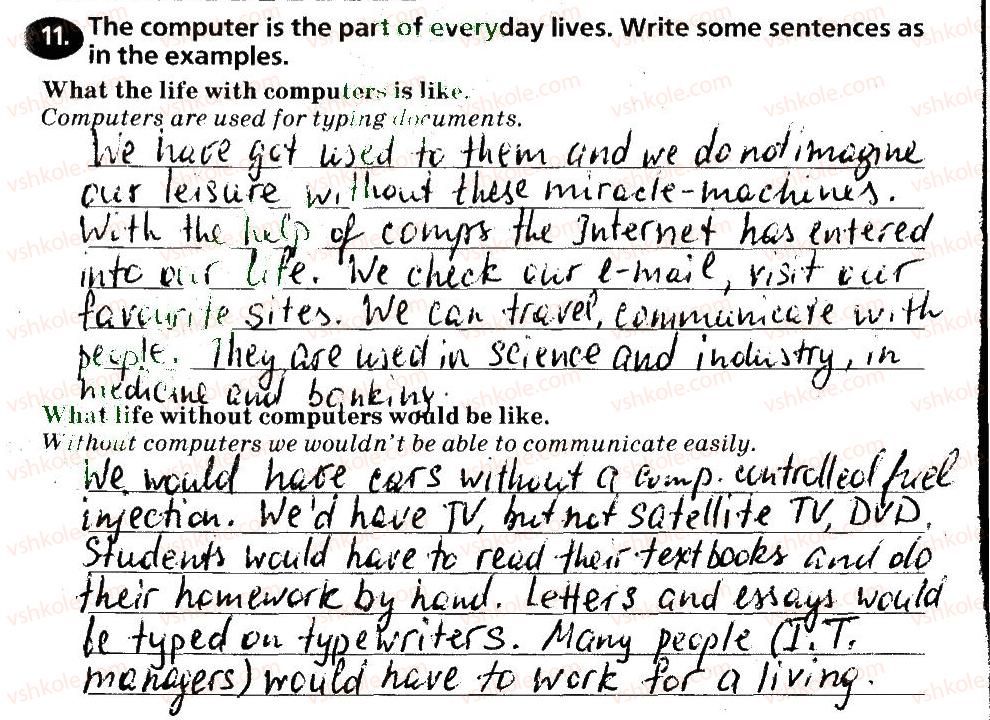 11. The computer is the part of everyday lives. Write some sentences as
in the examples.
What the life with computers is like.
Computers are used for typing documents.
We have got used to them and we do not imagine
our leisure without these miracle-machines.
With the help of comps the Internet has entered
into our life. We check our e-mail, visit our
favourite sites. We can travel, communicate with
people. They are used in science and industry, in
medicine and banking.
What life without computers would be like.
Without computers we wouldn't be able to communicate easily.
We would have cars without a comp. controlled fuel
injection. We'd have TV, but not satellite TV, DVD.
Students would have to read their textbooks and do
their homework by hand. Letters and essays would
be typed on typewriters. Many people (I.T.
managers) would have to work for a living.